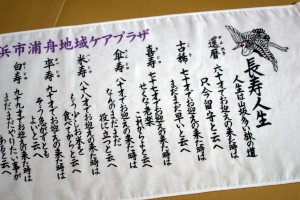 長寿人生
人生は山坂多い旅の道
還暦
六十才でお迎えの来た時は
只今留守と云へ
古稀
七十才でお迎えの来た時は
まだまだ早いと云へ
喜寿
七十七才でお迎えの来た時は
せくな老楽これからよと云へ
傘寿
八十才でお迎えの来た時は
なんのまだまだ役に立つと云へ
米寿
八十八才でお迎えの来た時は
もう少しお米を食べてからと云へ
卒寿
九十才でお迎えの来た時は
そう急がずともよいと云へ
白寿
九十九才でお迎えの来た時は
まだまだやりたい事があると云へ
浜市浦舟地域ケアプラザ